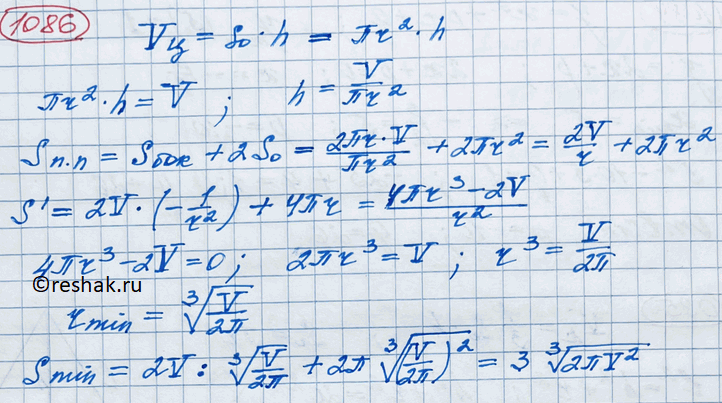 1086
Vц = So · h = πr² · h
πr² · h = V ; h = V/πr²
Sп.п = Sбок + 2So = 2πr · V/πr² + 2πr² = 2V/r + 2πr²
S' = 2V · (-1/r²) + 4πr = 4πr³ - 2V/r²
4πr³ - 2V = 0 ; 2πr³ = V ; r³ = V/2π
©reshak.ru
rmin = ³√V/2π
Smin = 2V : ³√V/2π + 2π ³√(V/2π)² = 3 ³√2πV²